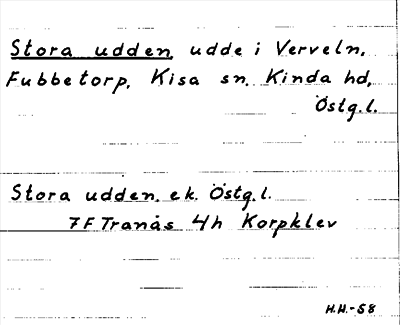 Stora udden, udde i Verveln,
Fubbetorp, Kisa sn, Kinda hd,
Östg.l.
Stora udden, ek. Östg.l.
7F Tranås 4h Korpklev
H.H.-58